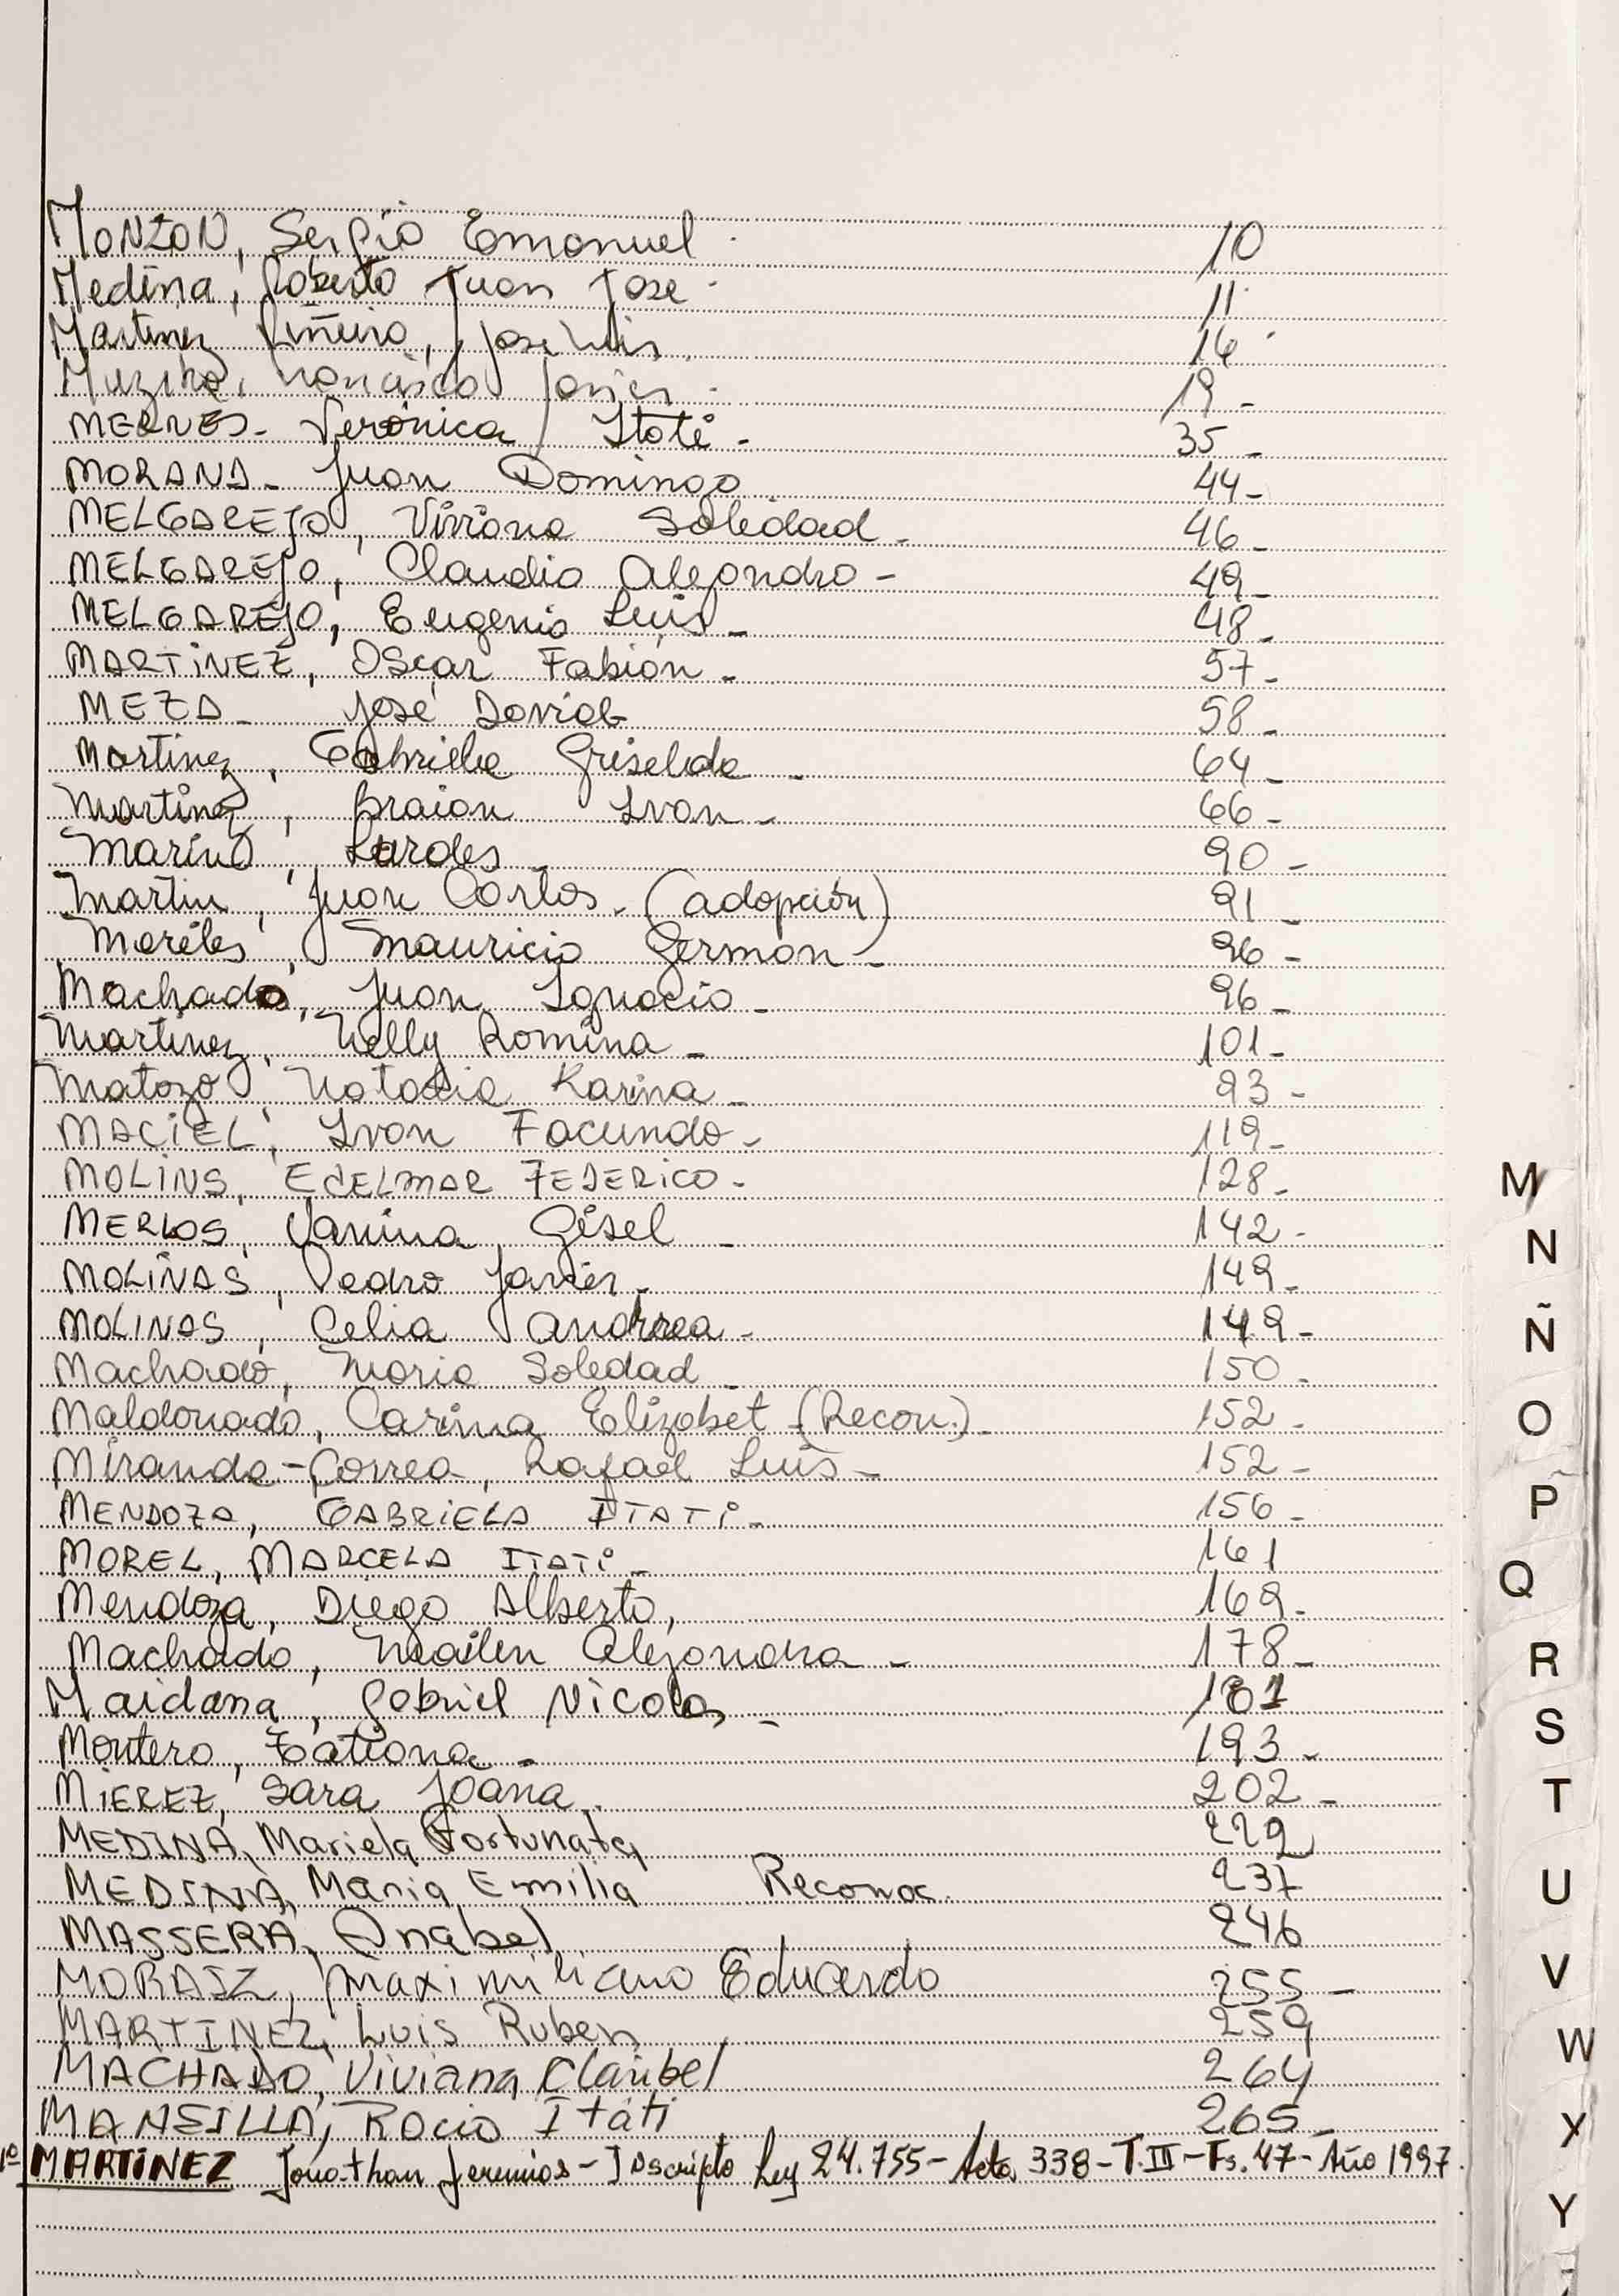 MONZON, Sergio Emanuel. 10
Medina, Roberto Juan Jose. 11
Martinez Piñeiro, Jose Luis. 16
Francisco Javier. 19-
Verónica Itatí- 35-
Juan Domingo 44-
MELGAREJO, Viviana Soledad- 46-
MELGAREJO, Claudio Alejandro- 49-
MELGAREJO, Eugenio Luis- 48-
MARTINEZ, Oscar Fabián- 57-
MEZA- José David 58-
Martinez, Gabriela Griselda- 64-
Martinez, Braian Ivan- 66-
Marino, Lurdes- 90-
Martin, Juan Carlos- (adopción) 91-
Mauricio German- 96-
Machado, Juan Ignacio- 96-
Martinez, Nelly Romina- 101-
Matozo, Natalia Karina- 93-
MACIEL, Ivan Facundo- 119-
MOLINS, EDELMAR FEDERICO- 128-
MERLOS, Vanina Gisel- 142-
MOLINAS, Pedro Javier- 149-
MOLINAS, Celia Andrea- 149-
Machado, Maria Soledad- 150-
Maldonado, Carina Elizabet (Recon.)- 152-
Miranda-Correa, Rafael Luis- 152-
MENDOZA, GABRIELA ITATI- 156-
MOREL, MARCELA ITATI- 161
Mendoza, Diego Alberto, 169-
Machado, Nailen Alejandra- 178-
Maidana, Gabriel Nicolas- 181
Montero, Tatiana- 193-
MIEREZ, Sara Joana. 202-
MEDINA, Mariela Fortunata 229
MEDINA, Maria Emilia Reconoc. 237
MASSERA, Anabel 246
Maximiliano Eduardo 255-
MARTINEZ, Luis Ruben 259
MACHADO, Viviana Claribel 264
MANSILLA, Rocio Itáti 265-
1º MARTINEZ Jonathan Jeremias- Iscripto Ley 24.755- Acta 338- T.III- Fs.47- Año 1997.
M
N
Ñ
O
P
Q
R
S
T
U
V
W
X
Y